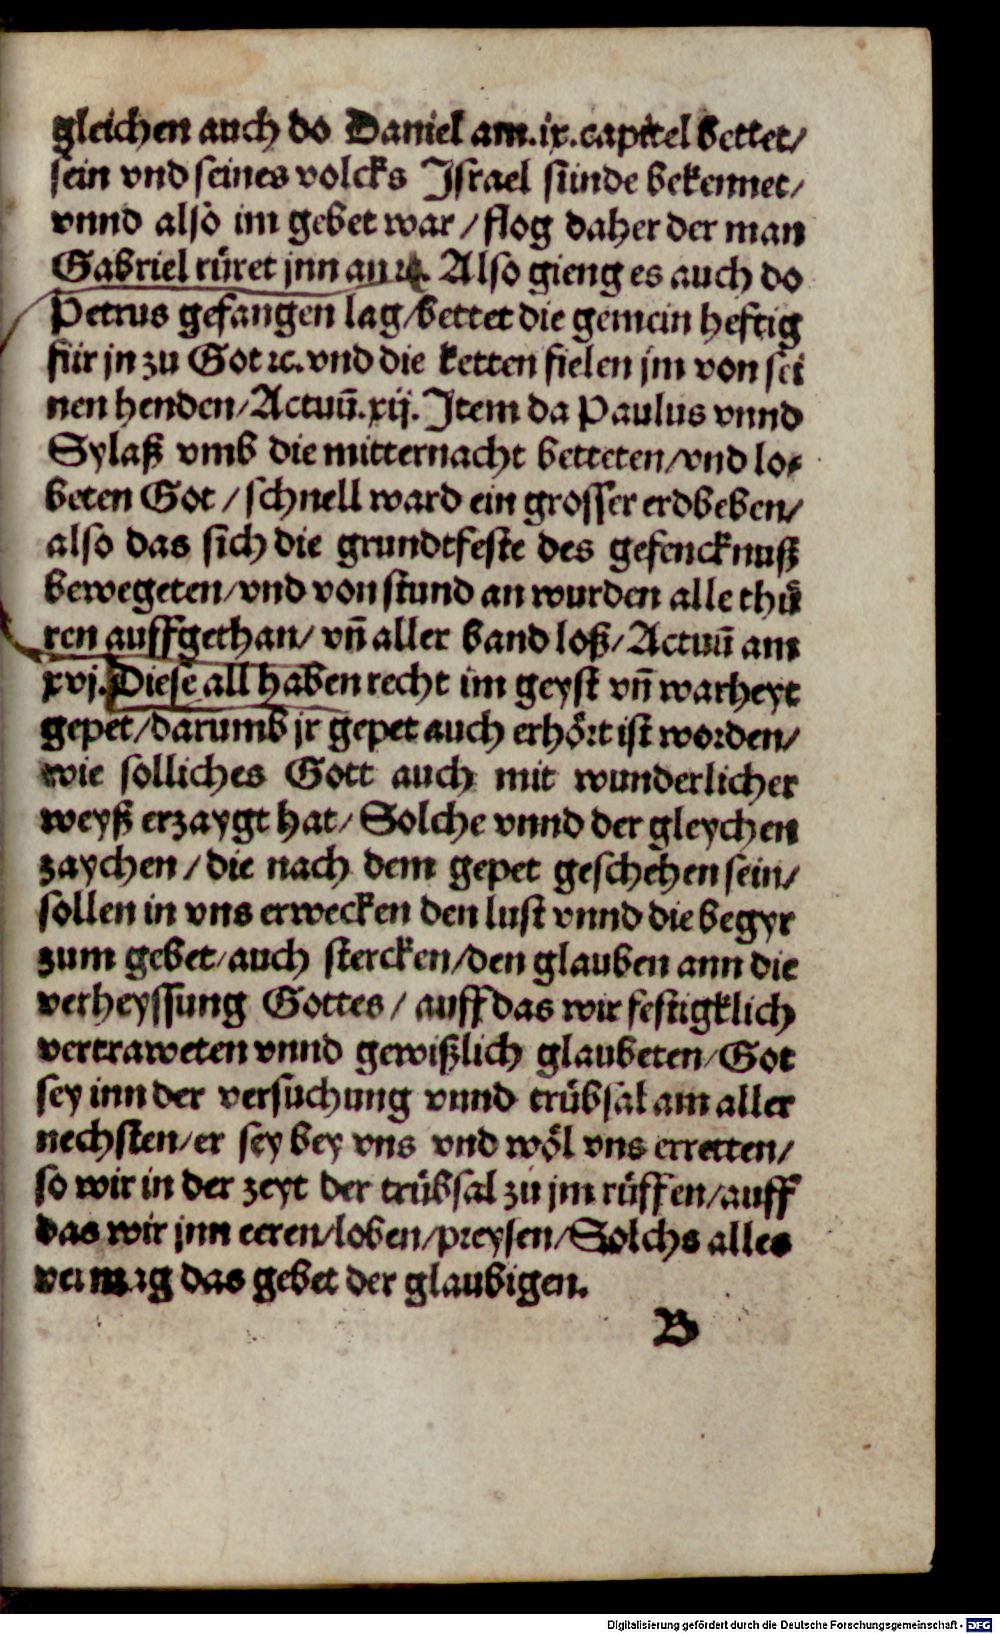 gleichen auch do Daniel am.ix.capitel bettet/
sein vnd seines volcks Israel sünde bekennet/
vnnd also im gebet war / flog daher der man
Gabriel rüret jnn an ꝛc. Also gieng es auch do
Petrus gefangen lag/bettet die gemein heftig
für jn zu Got ꝛc. vnd die ketten fielen jm von sei
nen henden/Actuū.xij. Item da Paulus vnnd
Sylaß vmb die mitternacht betteten/vnd lo⸗
beten Got / schnell ward ein grosser erdbeben/
also das sich die grundtfeste des gefencknuß
bewegeten/vnd von stund an wurden alle thü
ren auffgethan/ vn̄ aller band loß/Actuū am
xvj.Diese all haben recht im geyst vn̄ warheyt
gepet/darumb jr gepet auch erhört ist worden/
wie solliches Gott auch mit wunderlicher
weyß erzaygt hat/ Solche vnnd der gleychen
zaychen / die nach dem gepet geschehen sein/
sollen in vns erwecken den lust vnnd die begyr
zum gebet/auch stercken/den glauben ann die
verheyssung Gottes / auff das wir festigklich
vertraweten vnnd gewißlich glaubeten/Got
sey inn der versuchung vnnd trübsal am aller
nechsten/er sey bey vns vnd wöl vns erretten/
so wir in der zeyt der trübsal zu jm rüffen/auff
das wir jnn eeren/loben/preysen/Solchs alles
vermag das gebet der glaubigen.
B
Digitalisierung gefördert durch die Deutsche Forschungsgemeinschaft - DFG